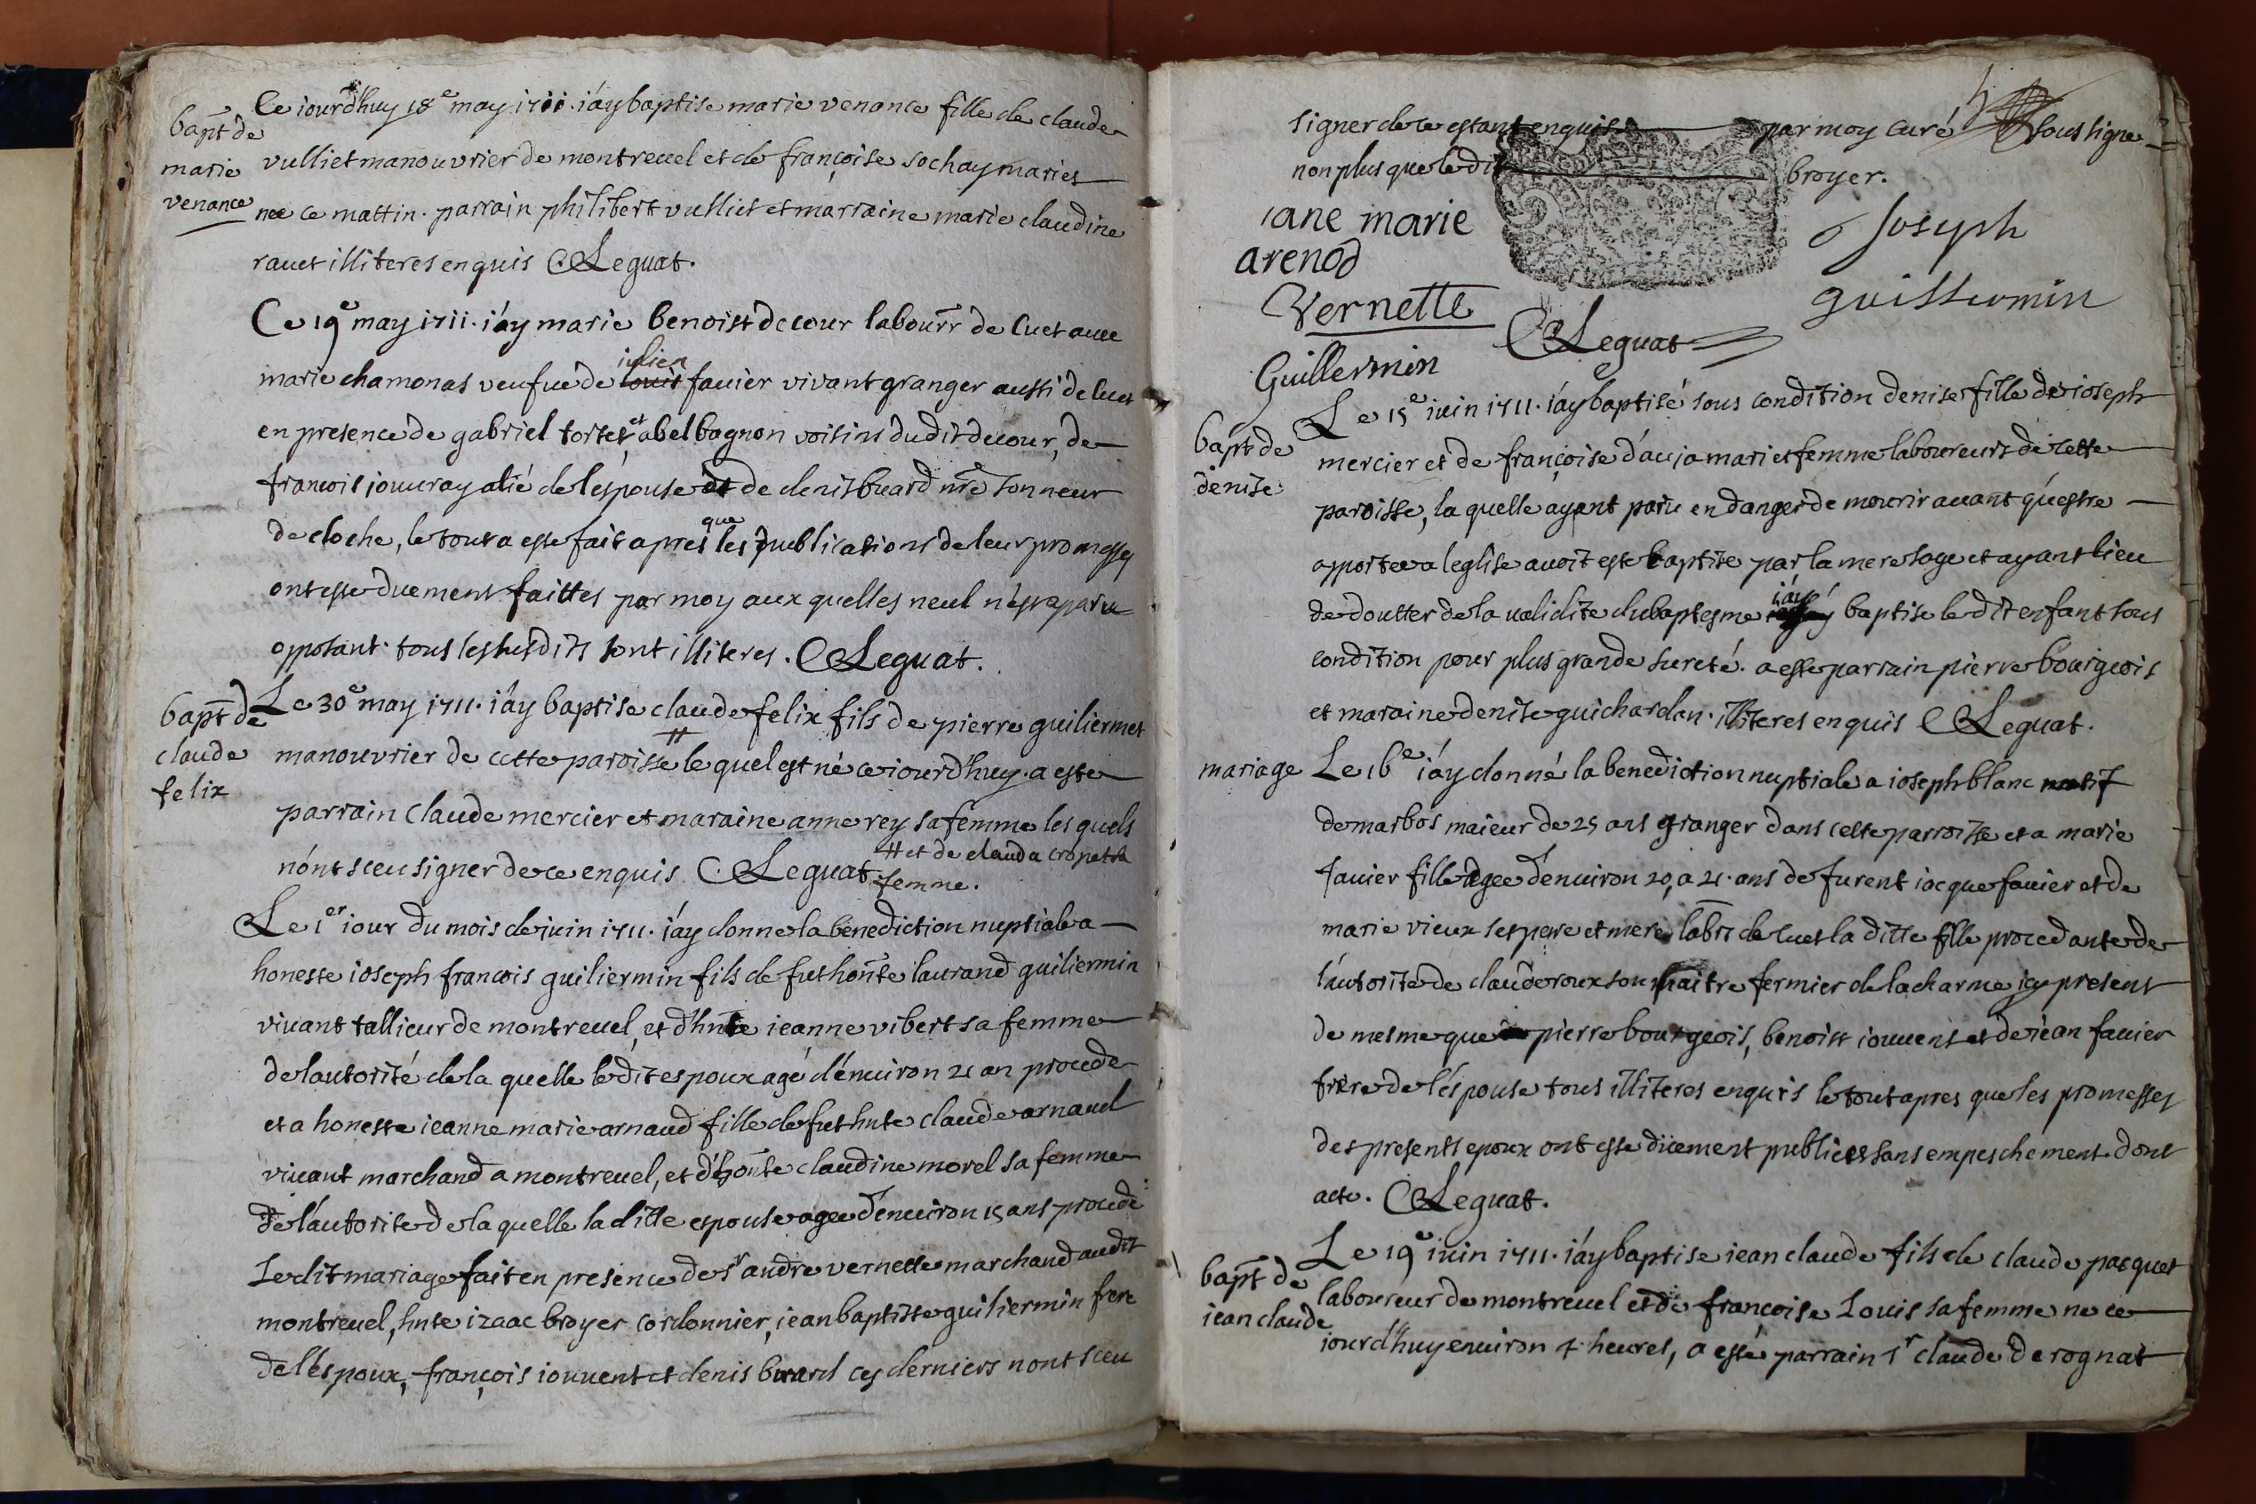 bapt de
marie
venance
Ce iourdhuy 18e may 1711. iáy baptise marie venance fille de claude
vulliet manouvrier de montreuel et de françoise sochay maries
nee ce mattin. parrain philibert vulliet et marraine marie claudine
rauet illiteres enquis CLeguat.
Ce 19e may 1711. iáy marie benoist decour labourr de Cuet auec
marie chamonas veufue de iulien fauier vivant granger aussi de cuet
en presence de gabriel tortet et abel bagnon voisins dudit decour, de
francois iouuray alié de léspouse de denis buard nre sonneur
de cloche, le tout a este fait apres que les publications de leur promesses
ont este duement faittes par moy aux quelles neul n'est paru
opposant. tous les susdits sont illiteres. CLeguat.
bapt de
claude
felix
Le 30e may 1711. iáy baptise claude felix fils de pierre guiliermet #
manouvrier de cette paroisse le quel est né ce iourdhuy. a este
parrain Claude mercier et maraine anne rey sa femme les quels
nónt sceu signer de ce enquis CLeguat.
# et de clauda cropet sa
femme.
Le 1er iour du mois de juin 1711. iáy donne la benediction nuptiale a
honeste ioseph francois guiliermin fils de fut honte laurand guiliermin
vivant tallieur de montreuel, et d'hnte ieanne vibert sa femme
de lautorité de la quelle le dit espoux agé d'énuiron 21 an procede
et a honeste ieanne marie arnaud fille de fut hnte claude arnaud
vivant marchand a montreuel, et d'honte claudine morel sa femme
de láutorite de la quelle la ditte espouse agee dénuiron 15 ans procede
Ledit mariage fait en presence de sr andre vernette marchand audit
montreuel, hnte izaac broyer cordonnier, iean baptiste guiliermin frere
de léspoux, françois iouuent et denis buard ces derniers nont sceu
signer de ce estant enquis par moy curé soussigne
non plus que le dit broyer.
iane marie
arenod
Vernette
Guillermin
CLeguat
Joseph
guillermin
bapt de
denise
Le 15e iuin 1711. iáy baptisé sous condition denise fille de ioseph
mercier et de françoise dáuja mari et femme laboureurs de cette
paroisse, la quelle áyant paru en danger de mourir auant qúestre
apportee a leglise auoit este baptise par la mere sage et ayant lieu
de doutter de la validite du baptesme iáy baptise le dit enfant sous
condition pour plus grande sureté. a este parrain pierre bourgeois
et maraine denise guichardan. illiteres enquis CLeguat.
mariage
Le 16e iáy donné la benediction nuptiale a ioseph blanc natif
de marbos maieur de 25 ans granger dans cette parroisse et a marie
fauier fille agee d'enuiron 20, a 21. ans de furent iacque fauier et de
marie vieux ses pere et mere labrs de cuet la ditte fille procedante de
láutorite de claude roux son maitre fermier de lacharme icy present
de mesme que pierre bourgeois, benoist iouuent et de iean fauier
frere de léspouse tous illiteres enquis le tout apres que les promesses
des presents epoux ont este düement publiees sans empeschement. dont
acte. CLeguat.
bapt de
iean claude
Le 19e iuin 1711. iáy baptise iean claude fils de claude pacquet
laboureur de montreuel et de francoise Louis sa femme ne ce
iourdhuy enuiron 4. heures, a esté parrain sr claude derognat